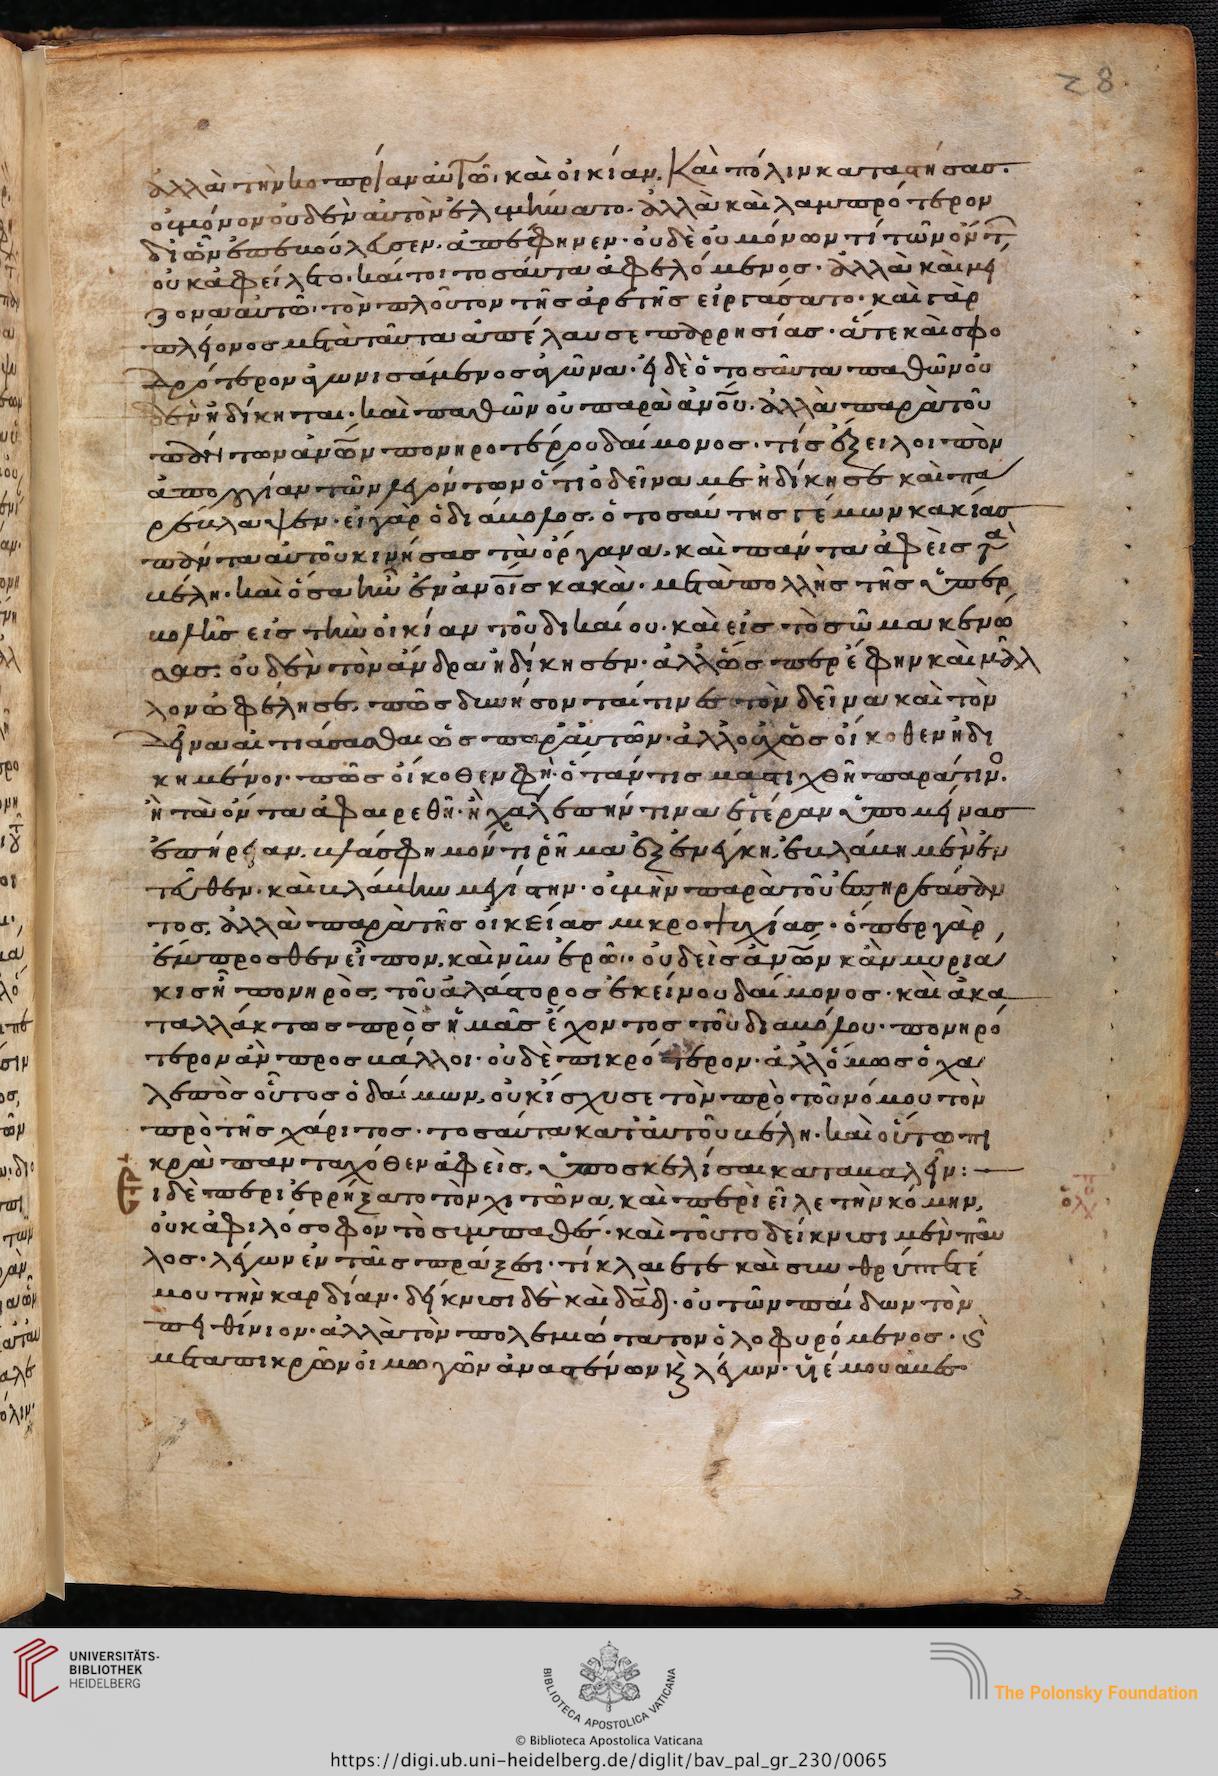 28
ἀλλὰ τὴν κοπρίαν αὐτῶ, καὶ οἰκίαν, καὶ πόλιν καταστήσασ.
οὐ μόνον οὐδὲν αὐτὸν ἐλυμήνατο. ἀλλὰ καὶ λαμπρότερον
δι' ὧν ἐπεβούλευσεν. ἀπέφηνεν· οὐδὲ οὐ μόνον τί τῶν ὄντ
οὐκ ἀφείλετο. καίτοι τοσαῦτα ἀφελόμενοσ· ἀλλὰ καὶ μεί
ζονα αὐτῶ· τὸν πλοῦτον τῆσ ἀρετῆσ εἰργάσατο· καὶ γὰρ
πλείονοσ μετὰ ταῦτα ἀπέλαυσε παρρησίασ· ἅτε καὶ σφο
δρότερον ἀγωνισάμενοσ ἀγῶνα· εἰ δὲ ὁ τοσαῦτα παθῶν οὐ
δὲν ἠδίκηται. καὶ παθῶν οὐ παρὰ ἀνου. ἀλλὰ παρὰ τοῦ
πάντων ἀνων πονηροτέρου δαίμονοσ· τίσ ἕξει λοιπὸν
ἀπολογίαν τῶν λεγόντων ὅτι ὁ δεῖνα με ἠδίκησε καὶ πα
ρέβλαψεν· εἰ γὰρ ὁ διάβολοσ. ὁ τοσαύτησ γέμων κακίασ
πάντα αὐτοῦ κινήσασ τὰ ὄργανα. καὶ πάντα ἀφεὶσ τὰ
βέλη. καὶ ὅσα ἦν ἐν ἀνοισ κακὰ. μετὰ πολλῆσ τῆσ ὑπερ
βολῆσ εἰσ τὴν οἰκίαν τοῦ δικαίου. καὶ εἰσ τὸ σῶμα κενώ
σασ. οὐδὲν τὸν ἄνδρα ἠδίκησεν· ἀλλ' ὡσ περ ἔφην καὶ μᾶλ
λον ὠφέλησε. πῶσ δυνήσονταί τινεσ τὸν δεῖνα καὶ τὸν
δεῖνα αἰτιάσασθαι ὡσ παρ' αὐτῶν· ἀλλ' οὐχ ὡσ οἴκοθεν ἠδι
κημένοι· πῶσ οἴκοθεν φὴ. ὅταν τισ μαστιχθῆ παρά τινο.
ἢ τὰ ὄντα ἀφαιρεθῆ. ἢ χαλεπήν τινα ἑτέραν ὑπομείνασ
ἐπήρειαν. βλάσφημόν τι ῥῆμα ἐξενέγκη. ἐβλάβη μὲν ἐν
τεῦθεν. καὶ βλάβην μεγίστην. οὐ μὴν παρὰ τοῦ ἐπηρεάσαν
τοσ, ἀλλὰ παρὰ τῆσ οἰκείασ μικροψυχίασ· ὅπερ γὰρ
ἔμπροσθεν εἶπον, καὶ νῦν ἐρῶ· οὐδεὶσ ἀνων κἂν μυριά
κισ ἦ πονηρόσ, τοῦ ἀλάστοροσ ἐκείνου δαίμονοσ· καὶ ἀκα
ταλλάκτωσ πρὸσ ἡμᾶσ ἔχοντοσ τοῦ διαβόλου· πονηρό
τερον ἂν προσβάλλοι. οὐδὲ πικρότερον· ἀλλ' ὅμωσ ὁ χα
λεπὸσ οὗτοσ ὁ δαίμων, οὐκ ἴσχυσε τὸν πρὸ τοῦ νόμου τὸν
πρὸ τῆσ χάριτοσ· τοσαῦτα κατ' αὐτοῦ βέλη. καὶ οὕτω πι
κρὰ πανταχόθεν ἀφεὶσ, ὑποσκελίσαι καταβαλεῖν:
εἰ δὲ περιερρήξατο τὸν χιτῶνα, καὶ περιεῖλε τὴν κόμην,
οὐκ ἀφιλόσοφον τὸ συμπαθέσ· καὶ τοῦτο δείκνυσι μὲν παῦ
λοσ. λέγων ἐν ταῖσ πράξεσι· τί κλαίετε καὶ συνθρύπτετέ
μου τὴν καρδίαν· δείκνυσι δὲ καὶ δαδ. οὐ τῶν παίδων τὸν
πειθήνιον· ἀλλὰ τὸν πολεμιώτατον ὀλοφυρόμενοσ· καὶ
μετὰ πικρῶν οἰμωγῶν ἀναστένων καὶ λέγων. υἱέ μου ἀβεσ
UNIVERSITÄTS-
BIBLIOTHEK
HEIDELBERG
BIBLIOTECA APOSTOLICA VATICANA
The Polonsky Foundation
© Biblioteca Apostolica Vaticana
https://digi.ub.uni-heidelberg.de/diglit/bav_pal_gr_230/0065